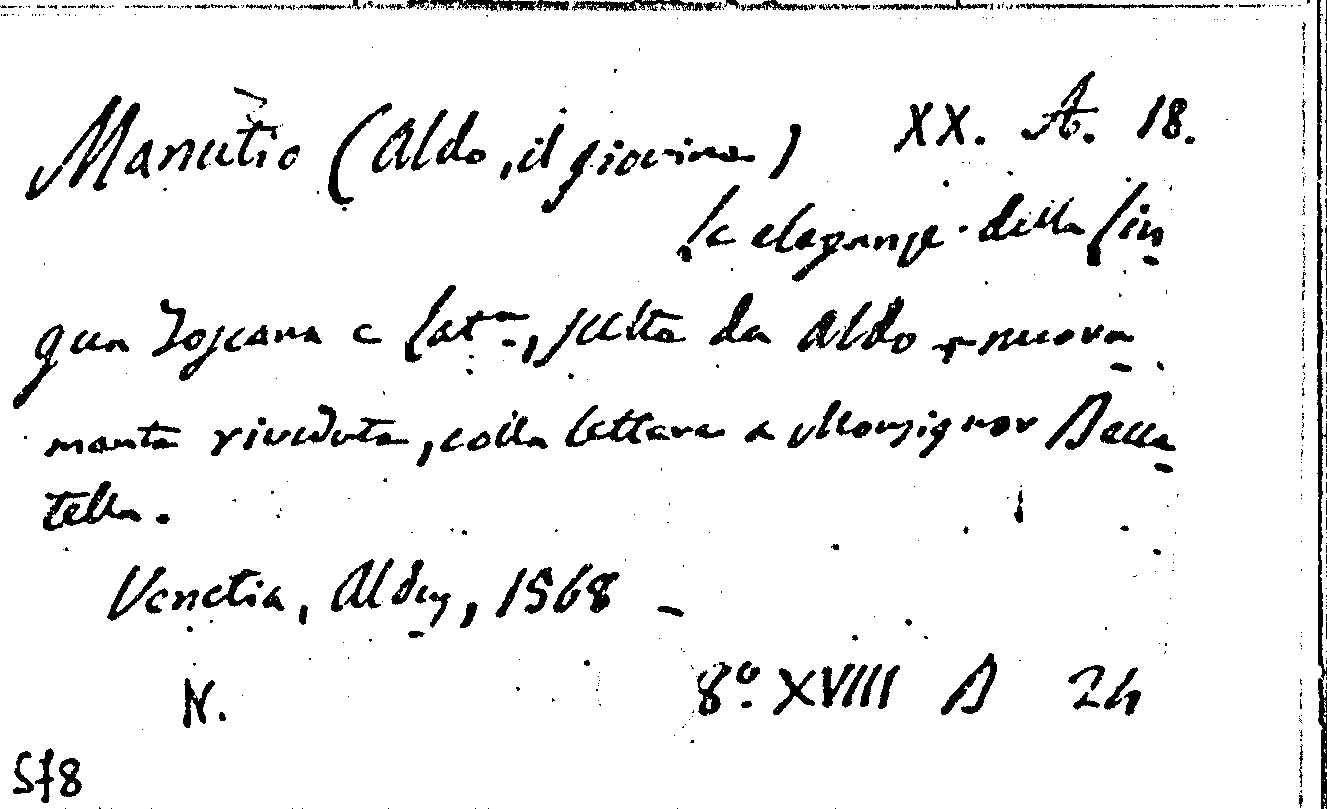 Manutio (Aldo, il giovine) XX. A. 18.
Le eleganze della lin
gua Toscana e lat.na, scelte da Aldo nuova
mente rivedute, colla lettera a Monsignor Bacca
tella.
Venetia, Aldus, 1568 –
N. 8º. XVIII B 24
Sf8